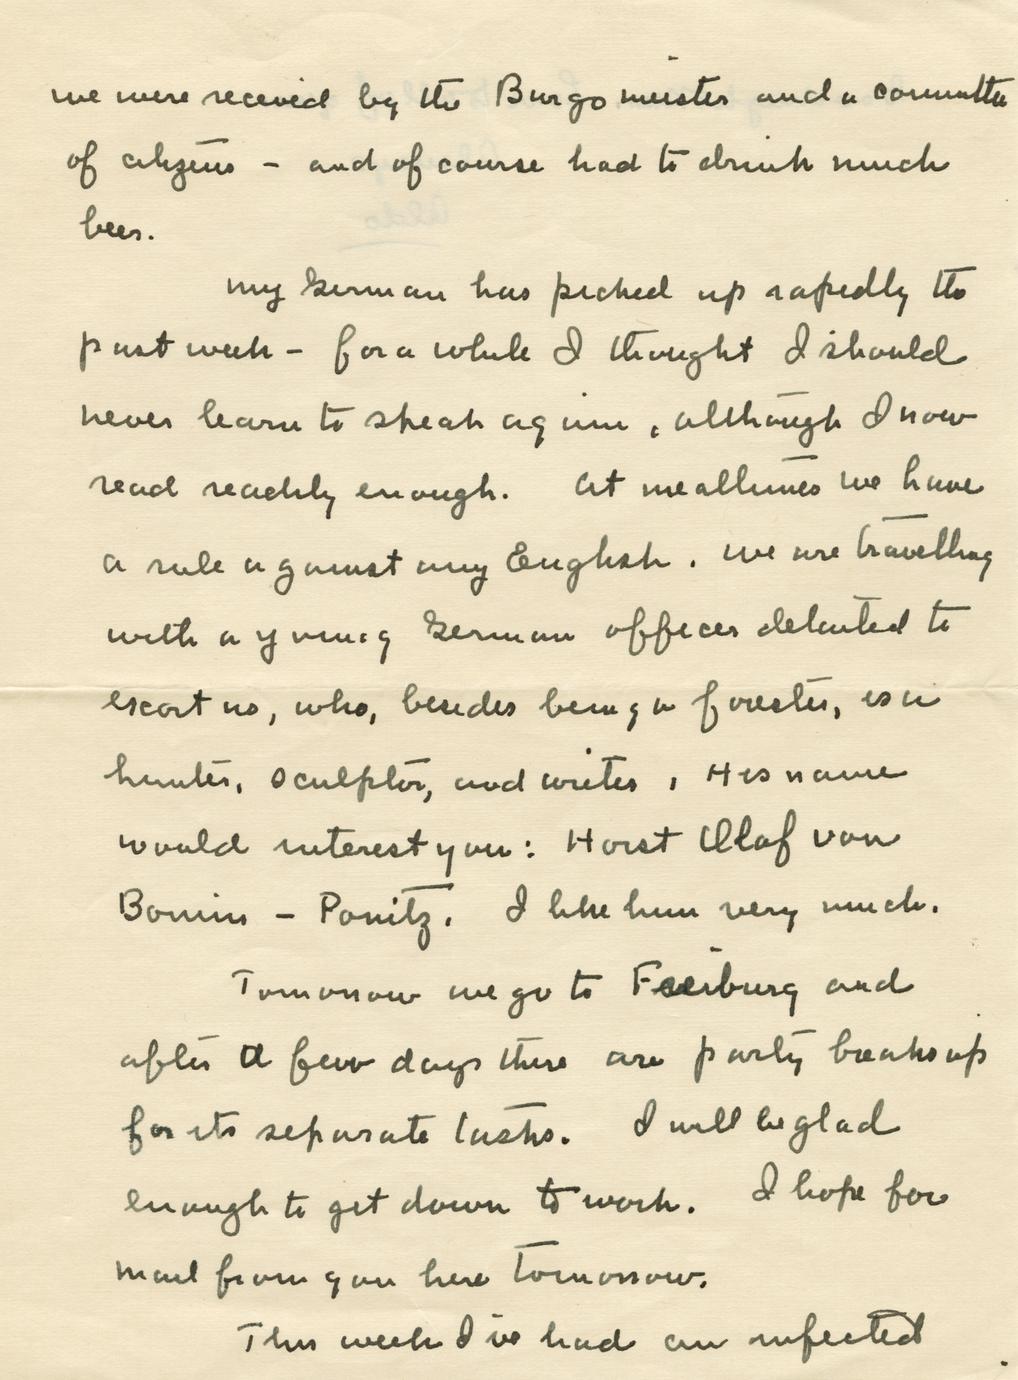 we were received by the Burgomeister and a committee
of citizens – and of course had to drink much
beer.
My German has picked up rapidly the
past week – for a while I thought I should
never learn to speak again, although I now
read readily enough. At mealtimes we have
a rule against any English. We are travelling
with a young German officer detailed to
escort us, who, besides being a forester, is a
hunter, sculptor, and writer. His name
would interest you: Horst Olaf von
Bonin – Ponitz. I like him very much.
Tomorrow we go to Freiburg and
after a few days there our party breaks up
for its separate tasks. I will be glad
enough to get down to work. I hope for
mail from you here tomorrow.
This week I've had an infected